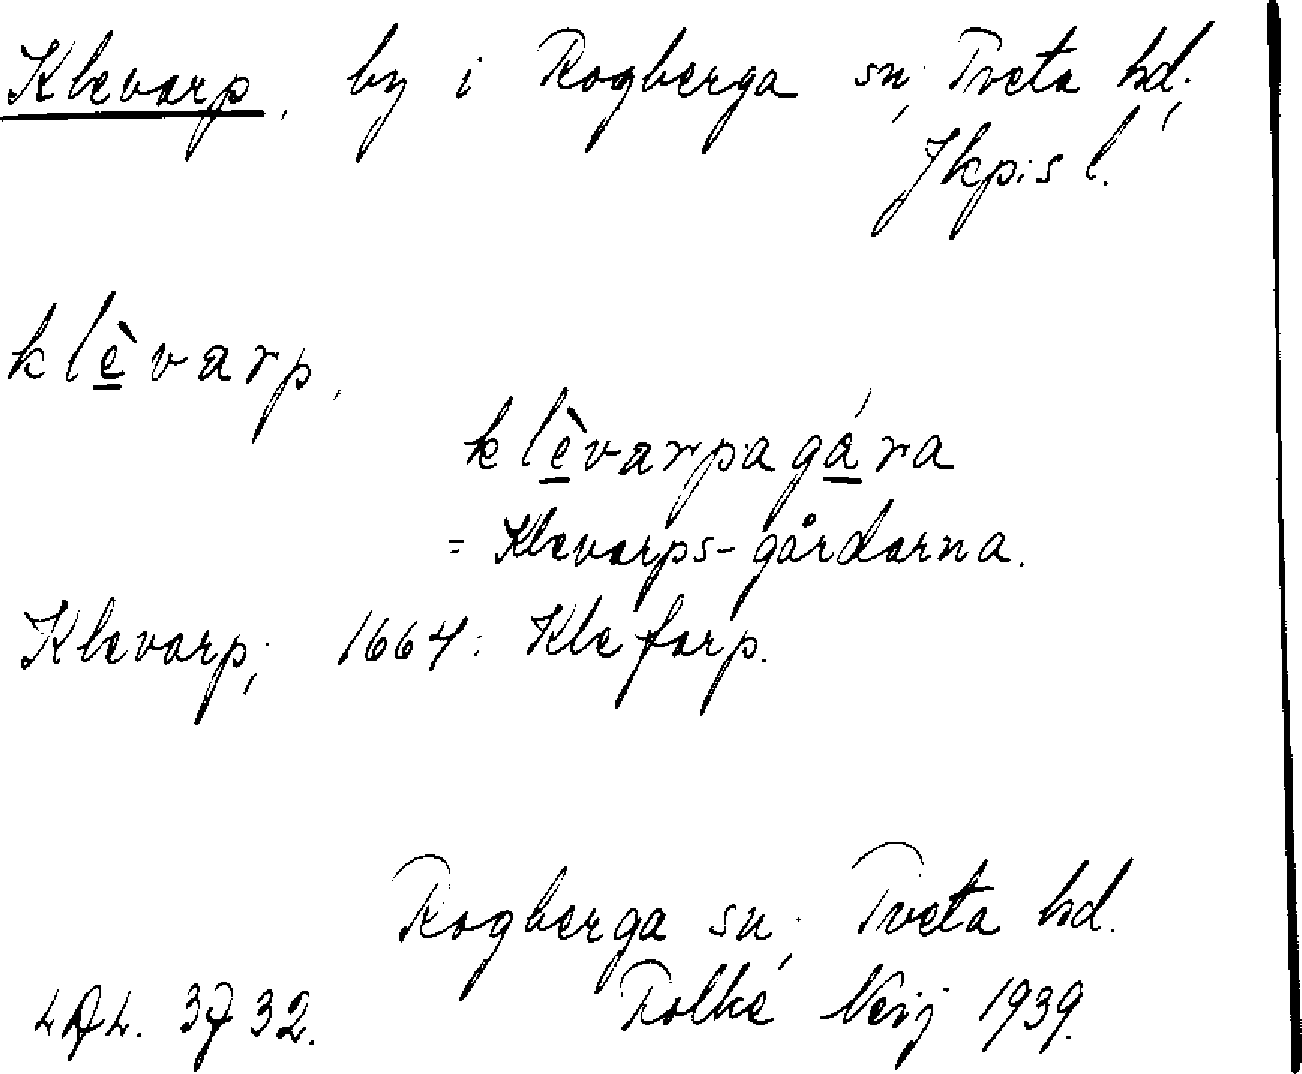 Klevarp, by i Rogberga sn, Tveta hd,
Jkpis l.
klèvarp,
klèvarpagára
= Klevarps-gårdarna.
Klevarp; 1664: Klefarp.
Rogberga sn, Tveta hd.
Folke 1939.
32.